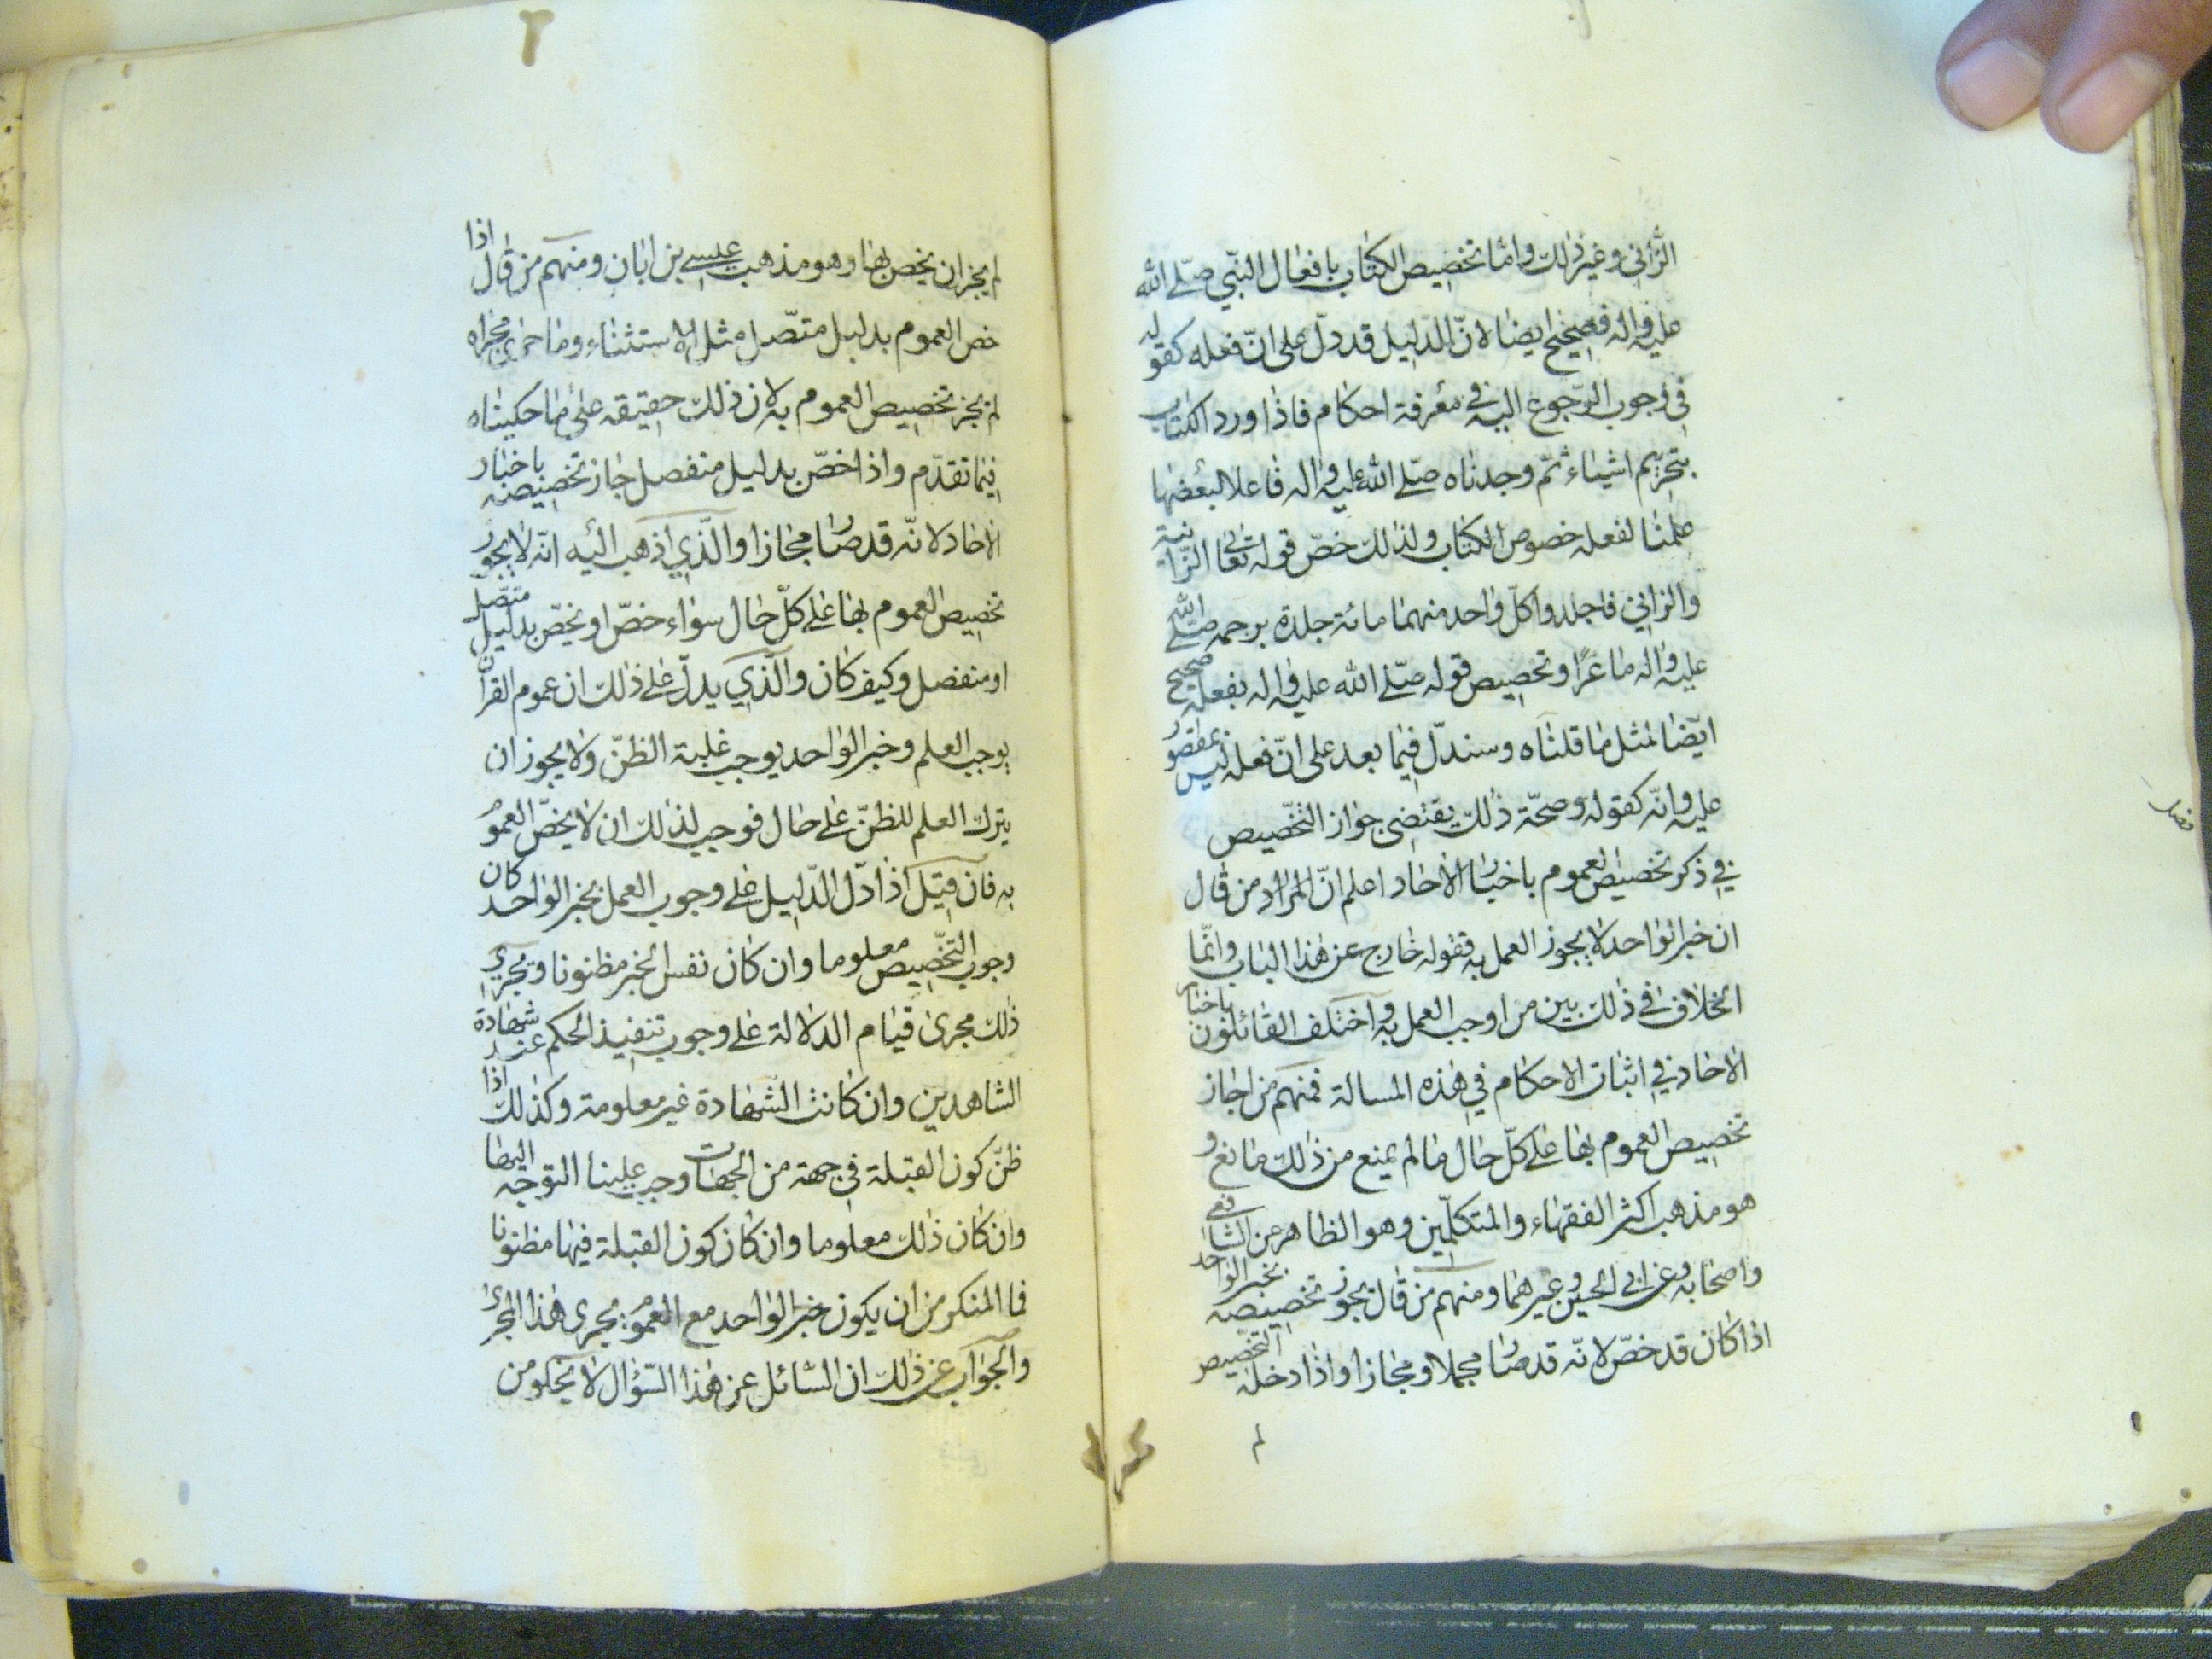 الزاني وغير ذلك وامّا تخصيص الكتاب بافعال النبّي صلّے الله
عليه واله فصحيح ايضا لانّ الدّليل قد دلّ على انّ فعله كقوله
في وجوب الرّجوع اليه في معرفة احكام فاذا ورد الكتاب
بتحريم اشياء ثمّ وجدناه صلّے الله عليه واله فاعلا لبعضها
علمنا لفعله خصوص الكتاب ولذلك خصّ قوله تعالى الزّانية
والزاني فاجلدوا كلّ واحد منهما مائة جلدة برجمه صلّے الله
عليه واله ماعزًا وتخصيص قوله صلّے الله عليه واله بفعله صحيح
ايضا لمثل ما قلناه وسندلّ فيما بعد على انّ فعله ليس بمقصور
عليه وانّه كقوله وصحّة ذلك يقتضى جواز التخّصيص
فصل
في ذكر تخصيص العموم باخبار الاحاد اعلم انّ المراد من قال
ان خبر الواحد لا يجوز العمل به فقوله خارج عن هذا الباب وانّما
الخلاف في ذلك بين من اوجب العمل به واختلف القائلون باخبار
الاحاد في اثبات الاحكام في هذه المسالة فمنهم من اجاز
تخصيص العموم بها علے كلّ حال ما لم يمنع من ذلك مانع و
هو مذهب اكثر الفقهاء والمتكلّمين وهو الظاهر عن الشافعي
واصحابه وعن ابي الحسين وغيرهما ومنهم من قال يجوز تخصيصه بخبر الواحد
اذا كان قد خصّ لانّه قد صار مجملا ومجازا واذا دخله التخصيص
لم
لم يجز ان يخص بها وهو مذهب عيسے بن ابان ومنهم من قال اذا
خص العموم بدليل متصّل مثل الاستثناء وما جرى مجراه
لم يجز تخصيص العموم به لان ذلك حقيقه علے ما حكيناه
فيما تقدّم واذا خصّ بدليل منفصل جاز تخصيصه باخبار
الاحاد لانّه قد صار مجازا والّذي اذهب اليه انّه لا يجوز
تخصيص العموم بها علے كلّ حال سواء خصّ او يخصّ بدليل متصّل
او منفصل وكيف كان والّذي يدلّ علے ذلك ان عموم القران
يوجب العلم وخبر الواحد يوجب غلبة الظنّ ولا يجوز ان
يترك العلم للظنّ علے حال فوجب لذلك ان لا يخصّ العموم
به فان قيل اذا دلّ الدّليل علے وجوب العمل بخبر الواحد كان
وجوب التخّصيص معلوما وان كان نفس الخبر مظنونا ويجري
ذلك مجرى قيام الدلالة علے وجوب تنفيذ الحكم عند شهادة
الشاهدين وان كانت الشهادة غير معلومة وكذلك اذا
ظنّ كون القبلة في جهة من الجهات وجب علينا التوجّه اليها
وان كان ذلك معلوما وان كان كون القبلة فيها مظنونا
فما المنكر من ان يكون خبر الواحد مع العموم يجرى هذا المجرى
والجواب عن ذلك ان السّائل عن هذا السّؤال لا يخلو من